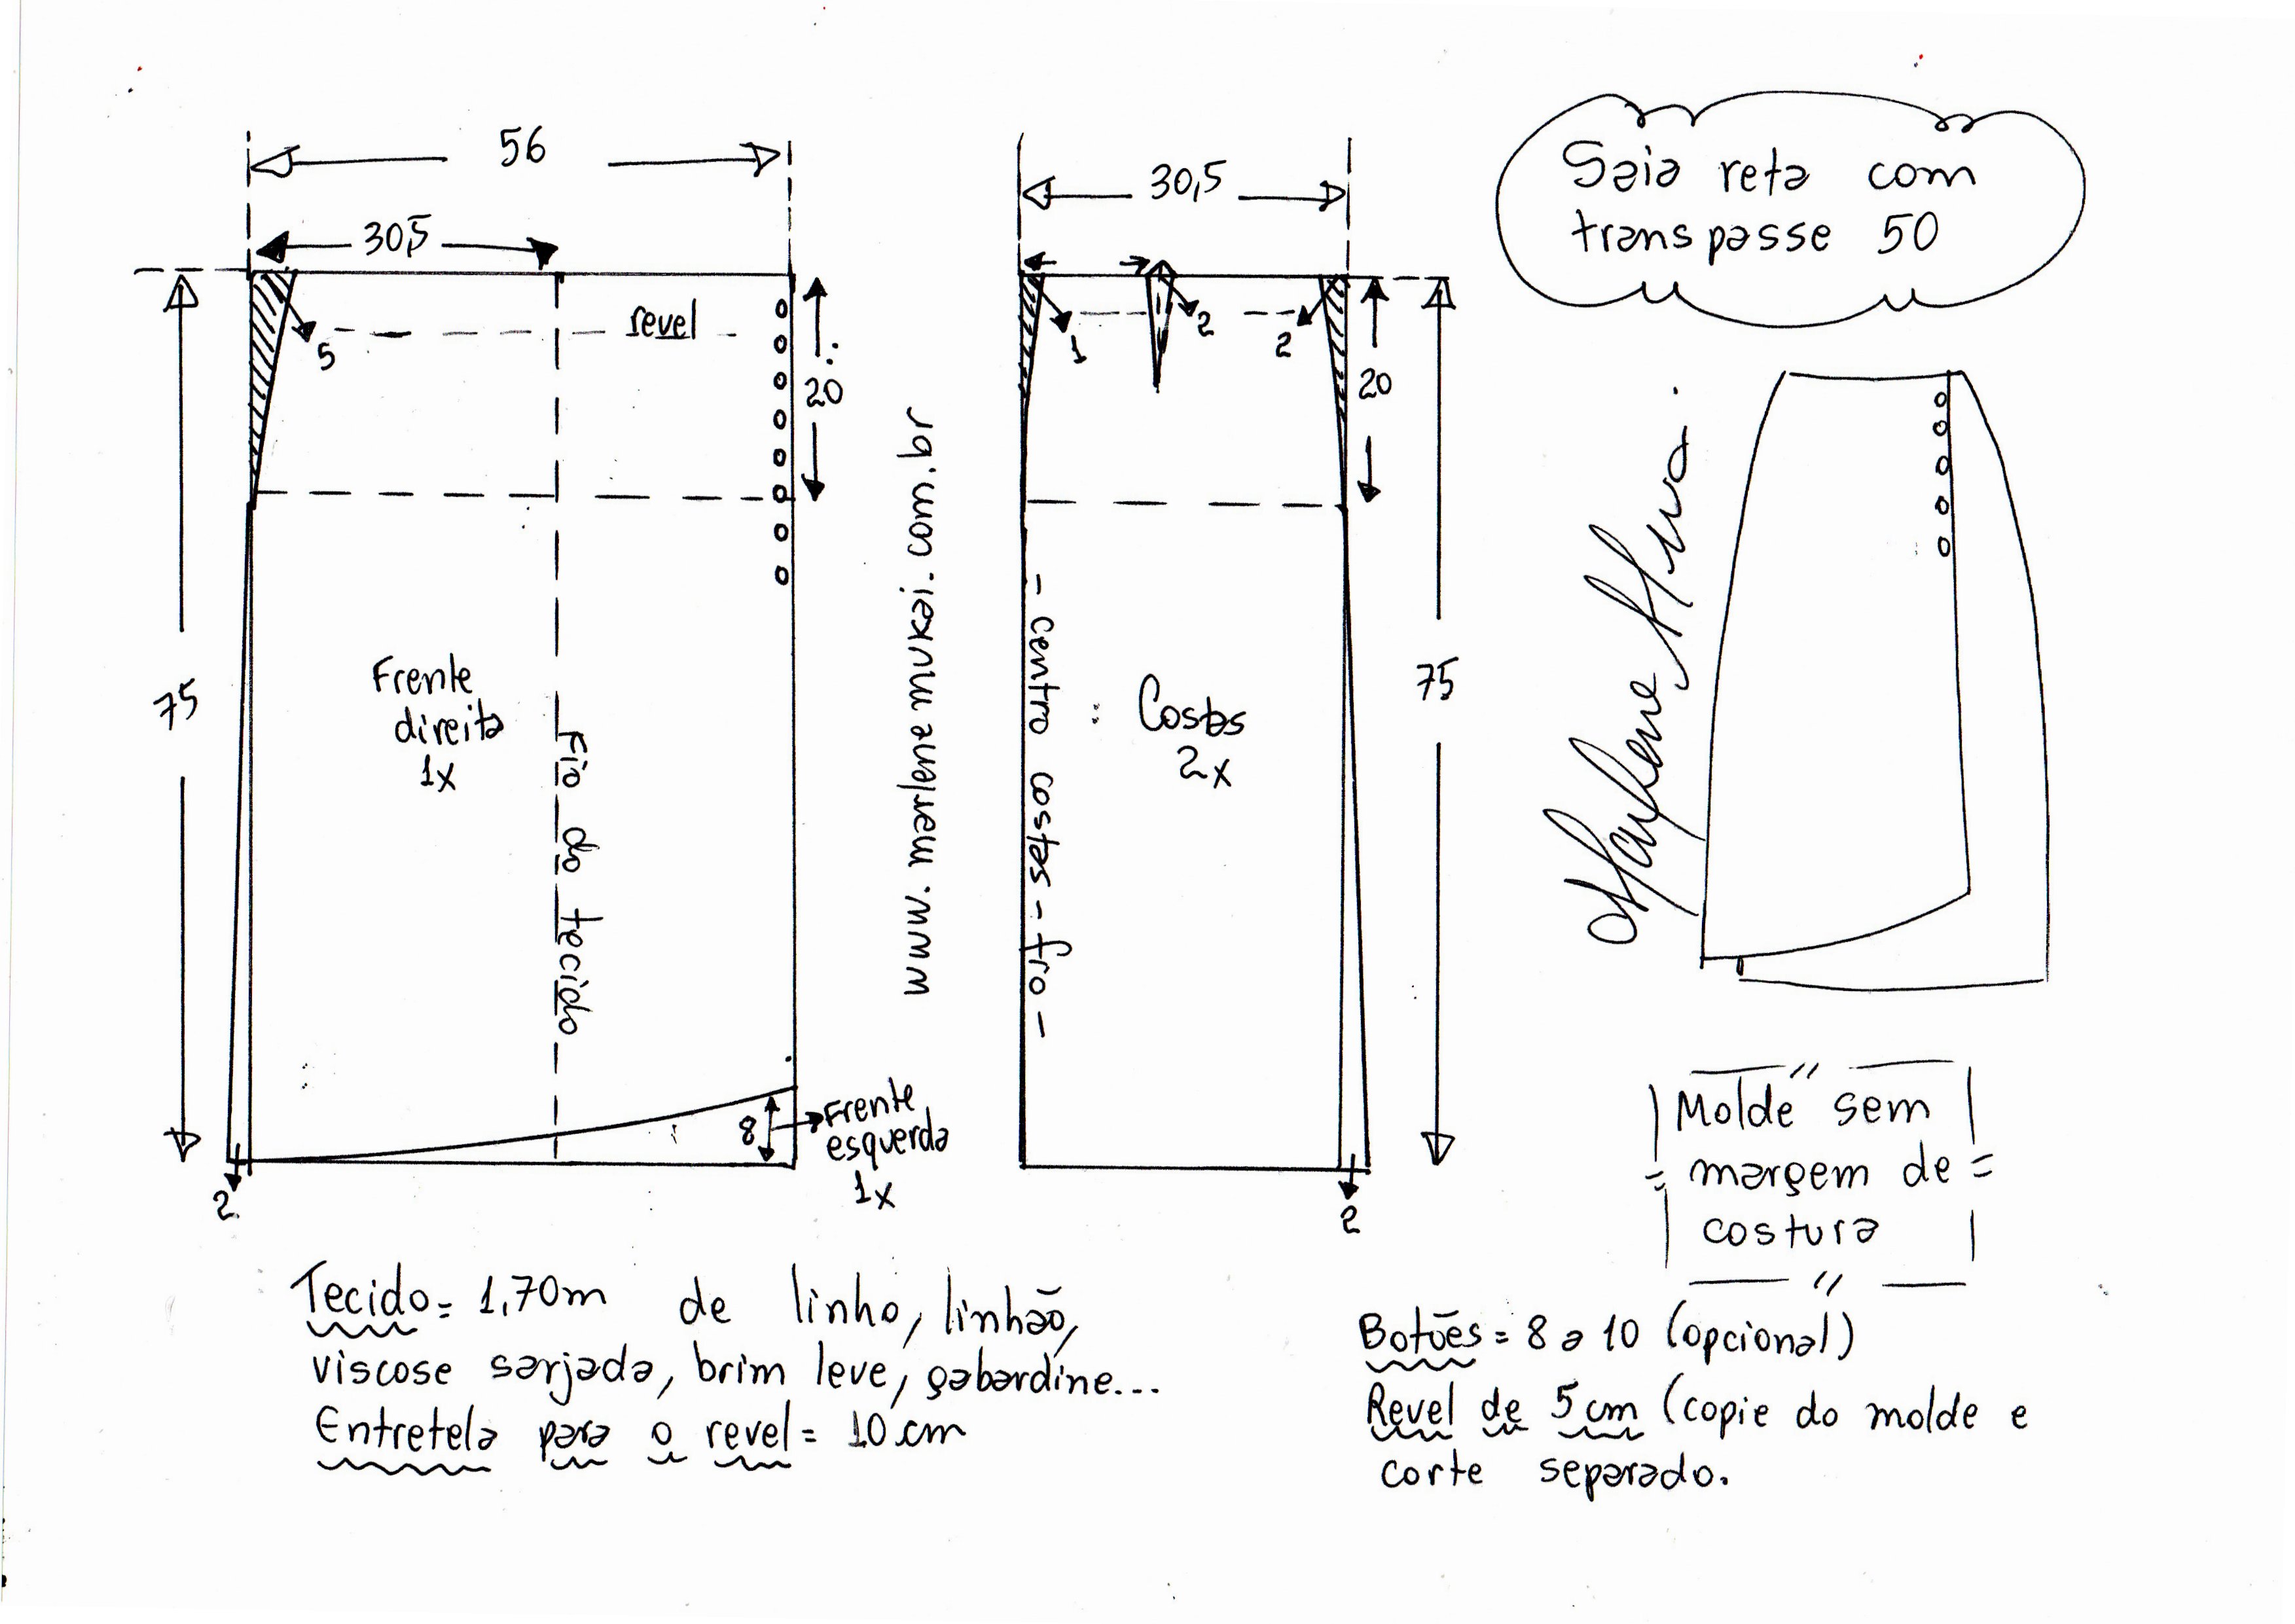 56
30,5
5
revel
20
75
Frente
direita
1x
Fio do tecido
8
Frente
esquerda
1x
2
www.marlenemukai.com.br
30,5
1
2
2
20
75
- centro costas - fio -
Costas
2x
2
Saia reta com
transpasse 50
Marlene Mukai
Molde sem
margem de
costura
Tecido = 1,70m de linho, linhão,
viscose sarjada, brim leve, gabardine...
Entretela para o revel = 10 cm
Botões = 8 a 10 (opcional)
Revel de 5 cm (copie do molde e
corte separado.